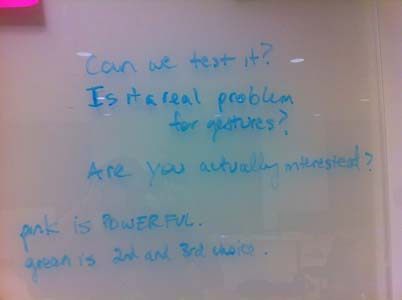 Can we test it?
Is it a real problem
for gestures?
Are you actually interested?
pink is POWERFUL.
green is 2nd and 3rd choice.